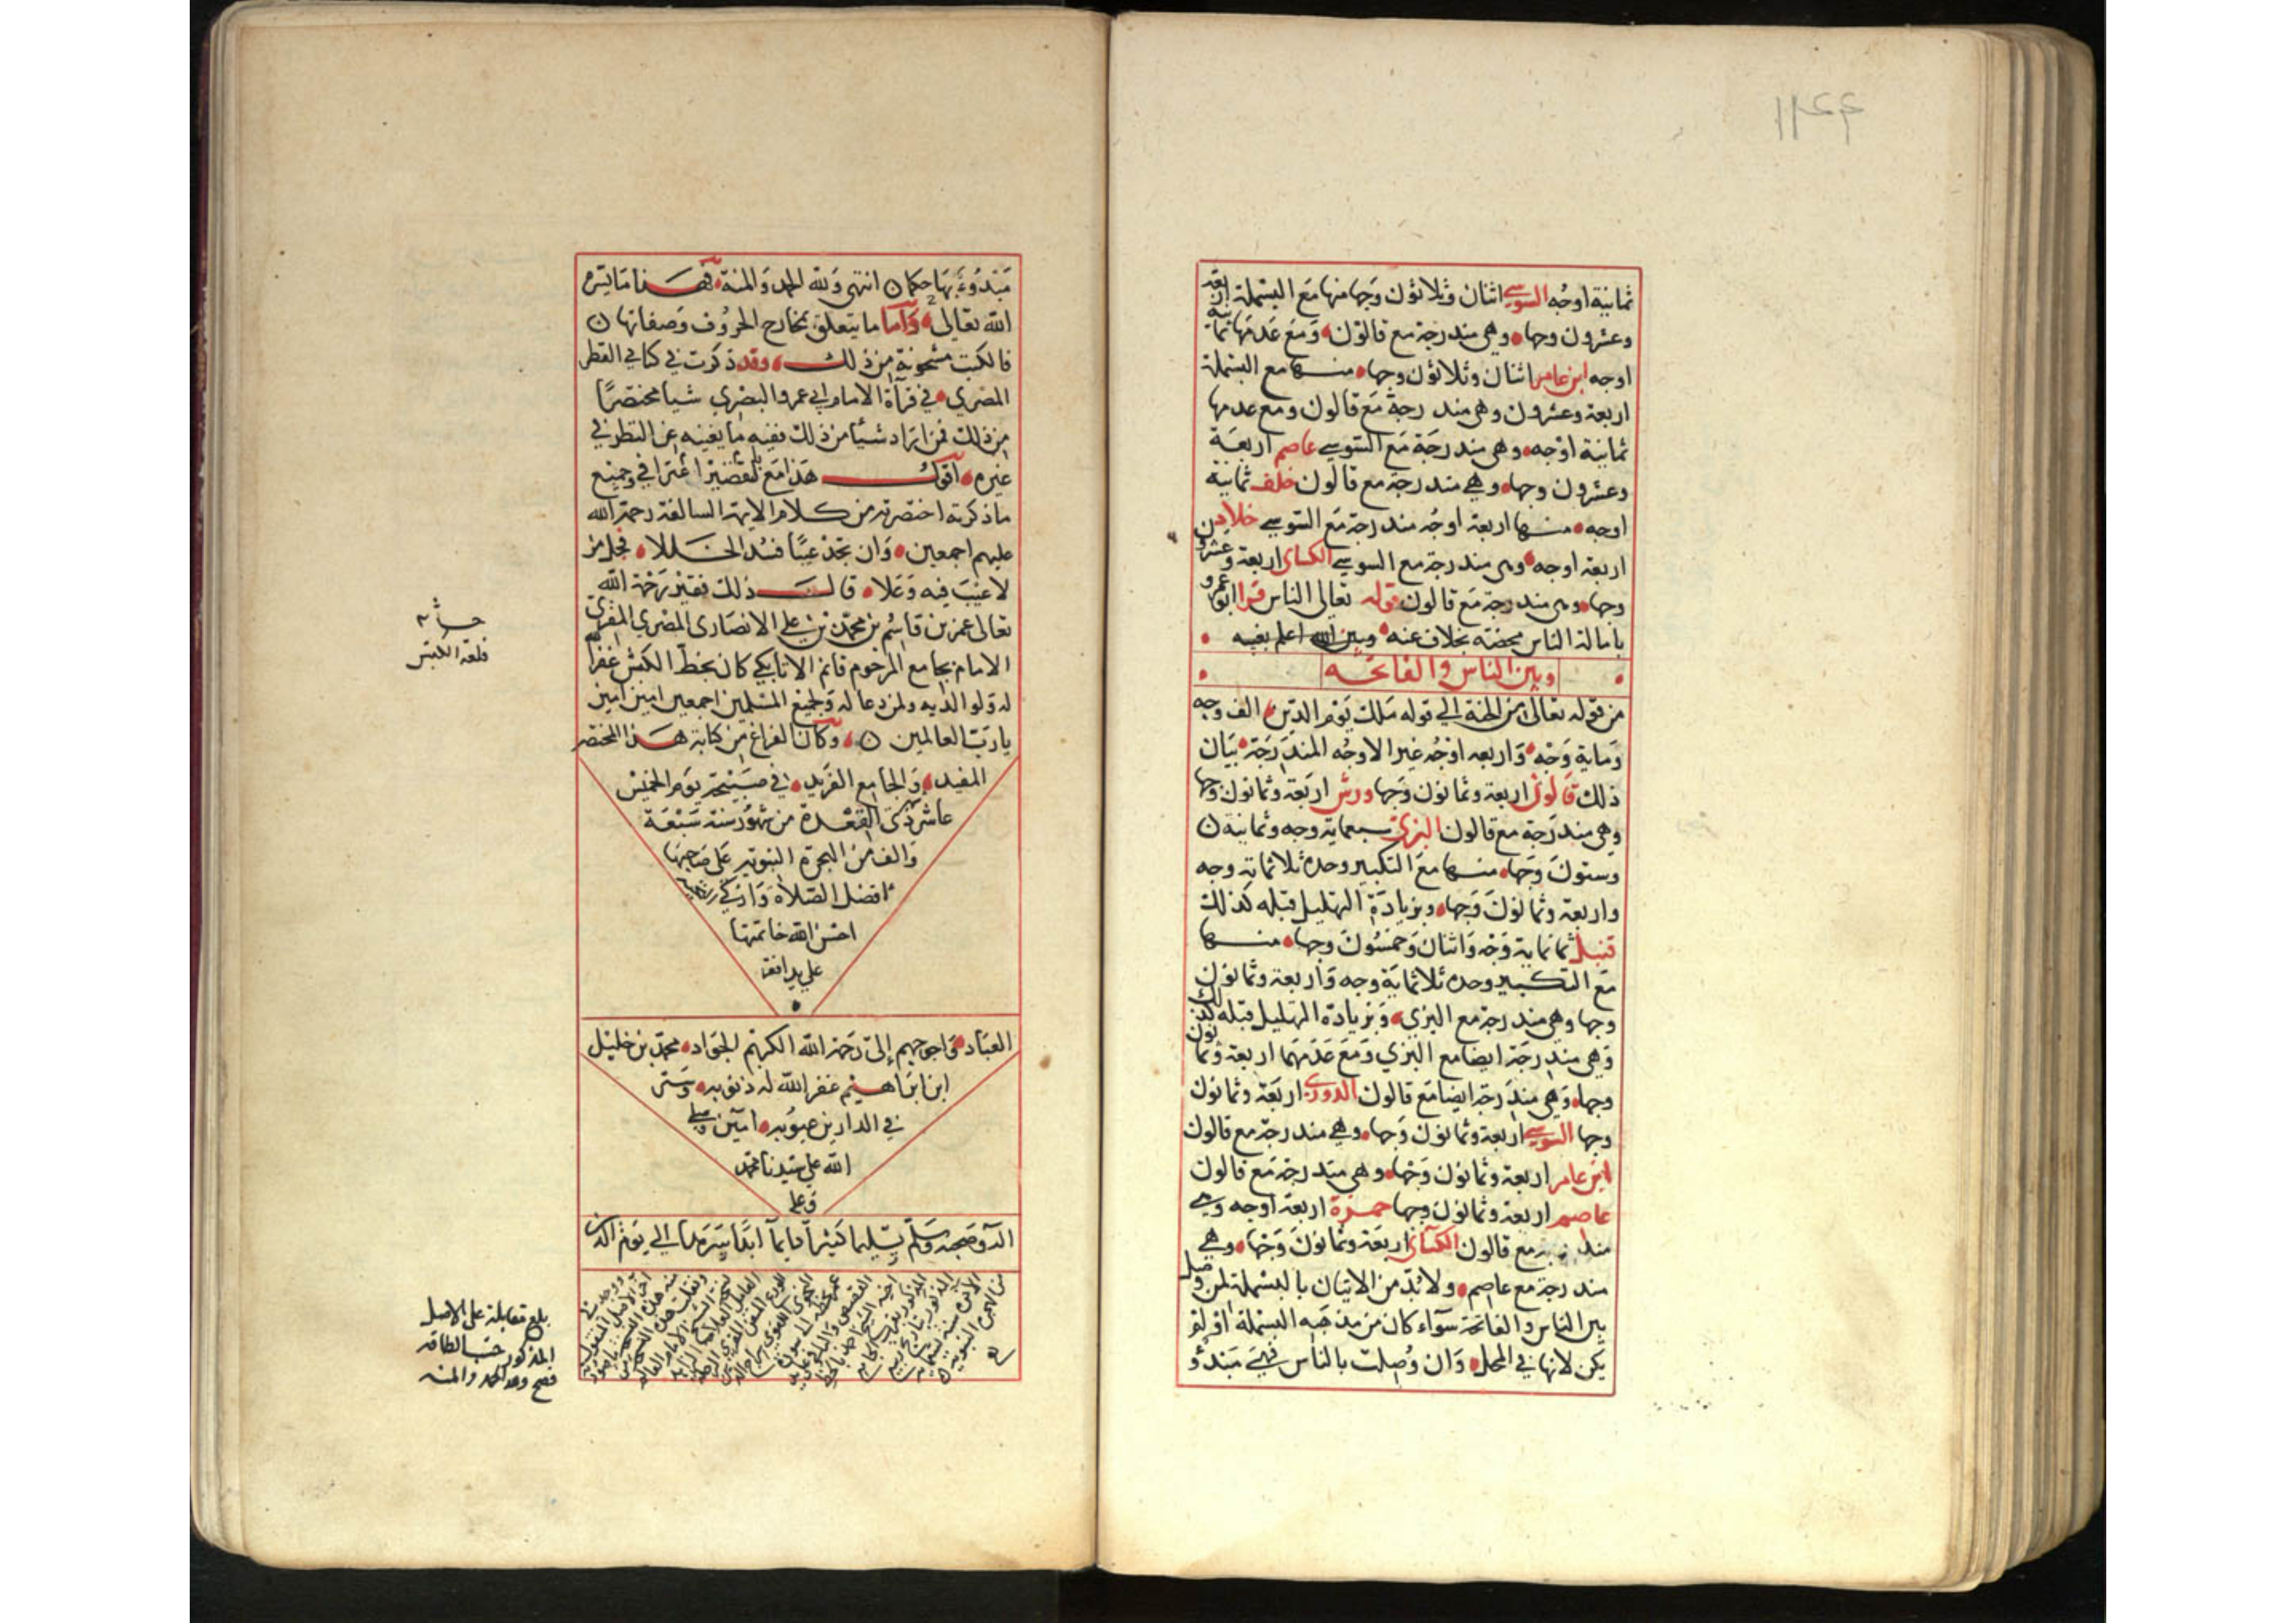 ١١٤٤
ثمانية اوجه السوسي اثنان وثلاثون وجها منها مع البسملة اربعة
وعشرون وجها وهي مندرجة مع قالون ومع عدمها ثمانية
اوجه ابن عامر اثنان وثلاثون وجها منها مع البسملة
اربعة وعشرون وهي مندرجة مع قالون ومع عدمها
ثمانية اوجه وهي مندرجة مع السوسي عاصم اربعة
وعشرون وجها وهي مندرجة مع قالون خلف ثمانية
اوجه منها اربعة اوجه مندرجة مع السوسي خلاد
اربعة اوجه وهي مندرجة مع السوسي الكسائي اربعة وعشرون
وجها وهي مندرجة مع قالون قوله تعالى الناس قرا ابو عمرو
بامالة الناس محضة بخلاف عنه وبين الله اعلم بغيبه
وبين الناس والفاتحة
من قوله تعالى من الجنة الى قوله ملك يوم الدين الف وجه
وماية وجه واربعه اوجه غير الاوجه المندرجة بيان
ذلك قالون اربعة وثمانون وجها ورش اربعة وثمانون وجها
وهي مندرجة مع قالون البزي سبعماية وجه وثمانية
وستون وجها منها مع التكبير وحده ثلاثماية وجه
واربعة وثمانون وجها وبزيادة التهليل قبله كذلك
قنبل ثمانماية وجه واثنان وخمسون وجها منها
مع التكبير وحده ثلاثماية وجه واربعة وثمانون
وجها وهي مندرجة مع البزي وبزيادة التهليل قبله كذلك
وهي مندرجة ايضا مع البزي ومع عدمهما اربعة وثمانون
وجها وهي مندرجة ايضا مع قالون الدوري اربعة وثمانون
وجها السوسي اربعة وثمانون وجها وهي مندرجة مع قالون
ابن عامر اربعة وثمانون وجها وهي مندرجة مع قالون
عاصم اربعة وثمانون وجها حمزة اربعة اوجه وهي
مندرجة مع قالون الكسائي اربعة وثمانون وجها وهي
مندرجة مع عاصم ولا بد من الاتيان بالبسملة لمن وصل
بين الناس والفاتحة سوآء كان من مذهبه البسملة او لم
يكن لانها في المحل وان وصلت بالناس فهي مبتدؤ
مبدوء بها حكما انتهى ولله الحمد والمنة هذا ما يسره
الله تعالى واما ما يتعلق بمخارج الحروف وصفاتها
فالكتب مشحونة من ذلك وقد ذكرت في كتابي القطر
المصري في قرآة الامام ابي عمرو البصري شيا مختصرا
من ذلك فمن اراد شيئا من ذلك ففيه ما يغنيه عن النظر في
غيره اقول هذا مع تقصير اعترافي وجميع
ما ذكرته اختصرته من كلام الايمة السالفة رحمة الله
عليهم اجمعين وان تجد عيبا فسد الخللا فجل من
لا عيب فيه وعلا قال ذلك فقير رحمة الله
تعالى عمر بن قاسم بن محمد بن علي الانصارى المصري المقري
الامام بجامع المرحوم قانم الاتابكي كان بخط الكبش غفر الله
له ولوالديه ولمن دعا له ولجميع المسلمين اجمعين امين امين
يا رب العالمين وكان الفراغ من كتابة هذا المختصر
المفيد والجامع الفريد في صبيحة يوم الخميس
عاشر ذي القعدة من شهور سنة سبعة
والف من الهجرة النبوية على صاحبها
افضل الصلاة وازكي
احسن الله خاتمتها
على يد افقر
العباد واحوجهم إلى رحمة الله الكريم الجواد محمد بن خليل
ابن ابراهيم غفر الله له ذنوبه وستر
في الدارين عيوبه امين وصلى
الله على سيدنا محمد
وعلى
اله وصحبه وسلم تسليما كثيرا دايما ابدا سرمدا الى يوم الدين
قلعة الكبش
بلغ مقابلة على الاصل
المذكور حسب الطاقة
فصح ولله الحمد والمنة